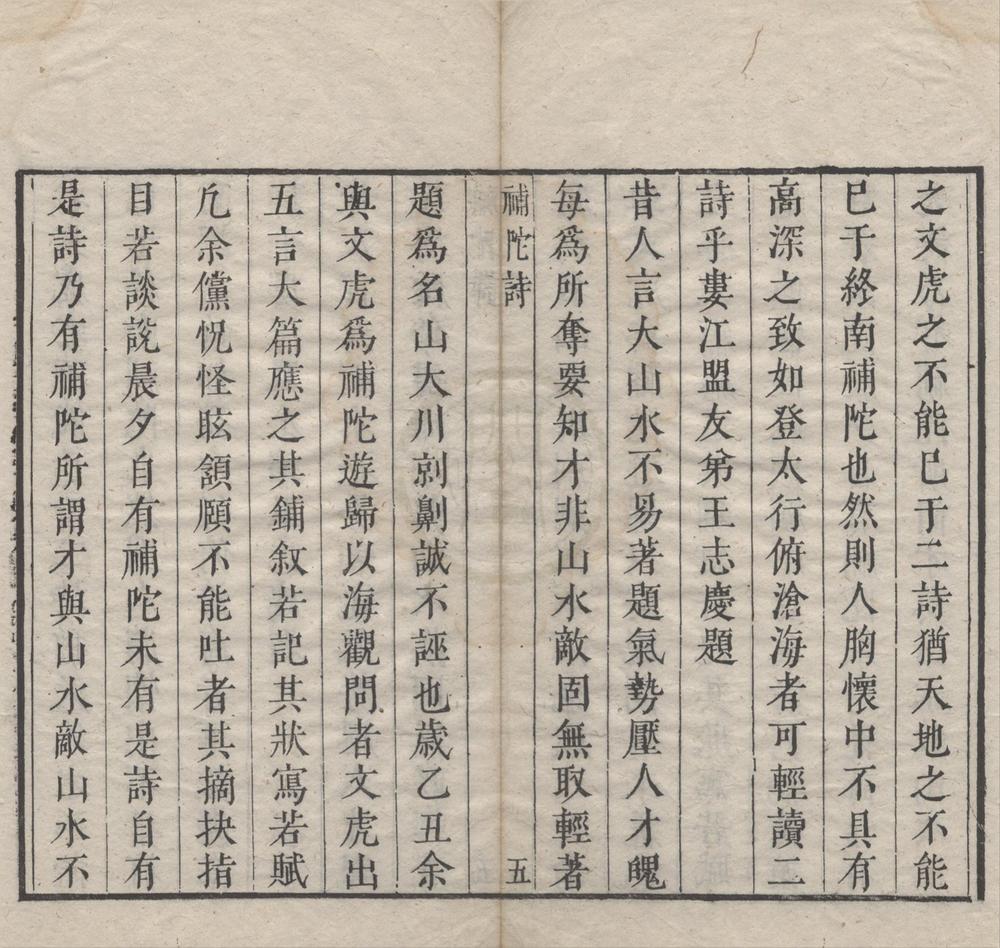 之文虎之不能已于二詩猶天地之不能
已于終南補陀也然則人胸懷中不具有
高深之致如登太行俯滄海者可輕讀二
詩乎婁江盟友弟王志慶題
昔人言大山水不易著題氣勢壓人才魄
每爲所奪要知才非山水敵固無取輕著
補陀詩
五
題爲名山大川剠劓誠不誣也歲乙丑余
與文虎爲補陀遊歸以海觀問者文虎出
五言大篇應之其鋪叙若記其狀寫若賦
凢余儻怳怪眩頷頤不能吐者其摘抉指
目若談說晨夕自有補陀未有是詩自有
是詩乃有補陀所謂才與山水敵山水不